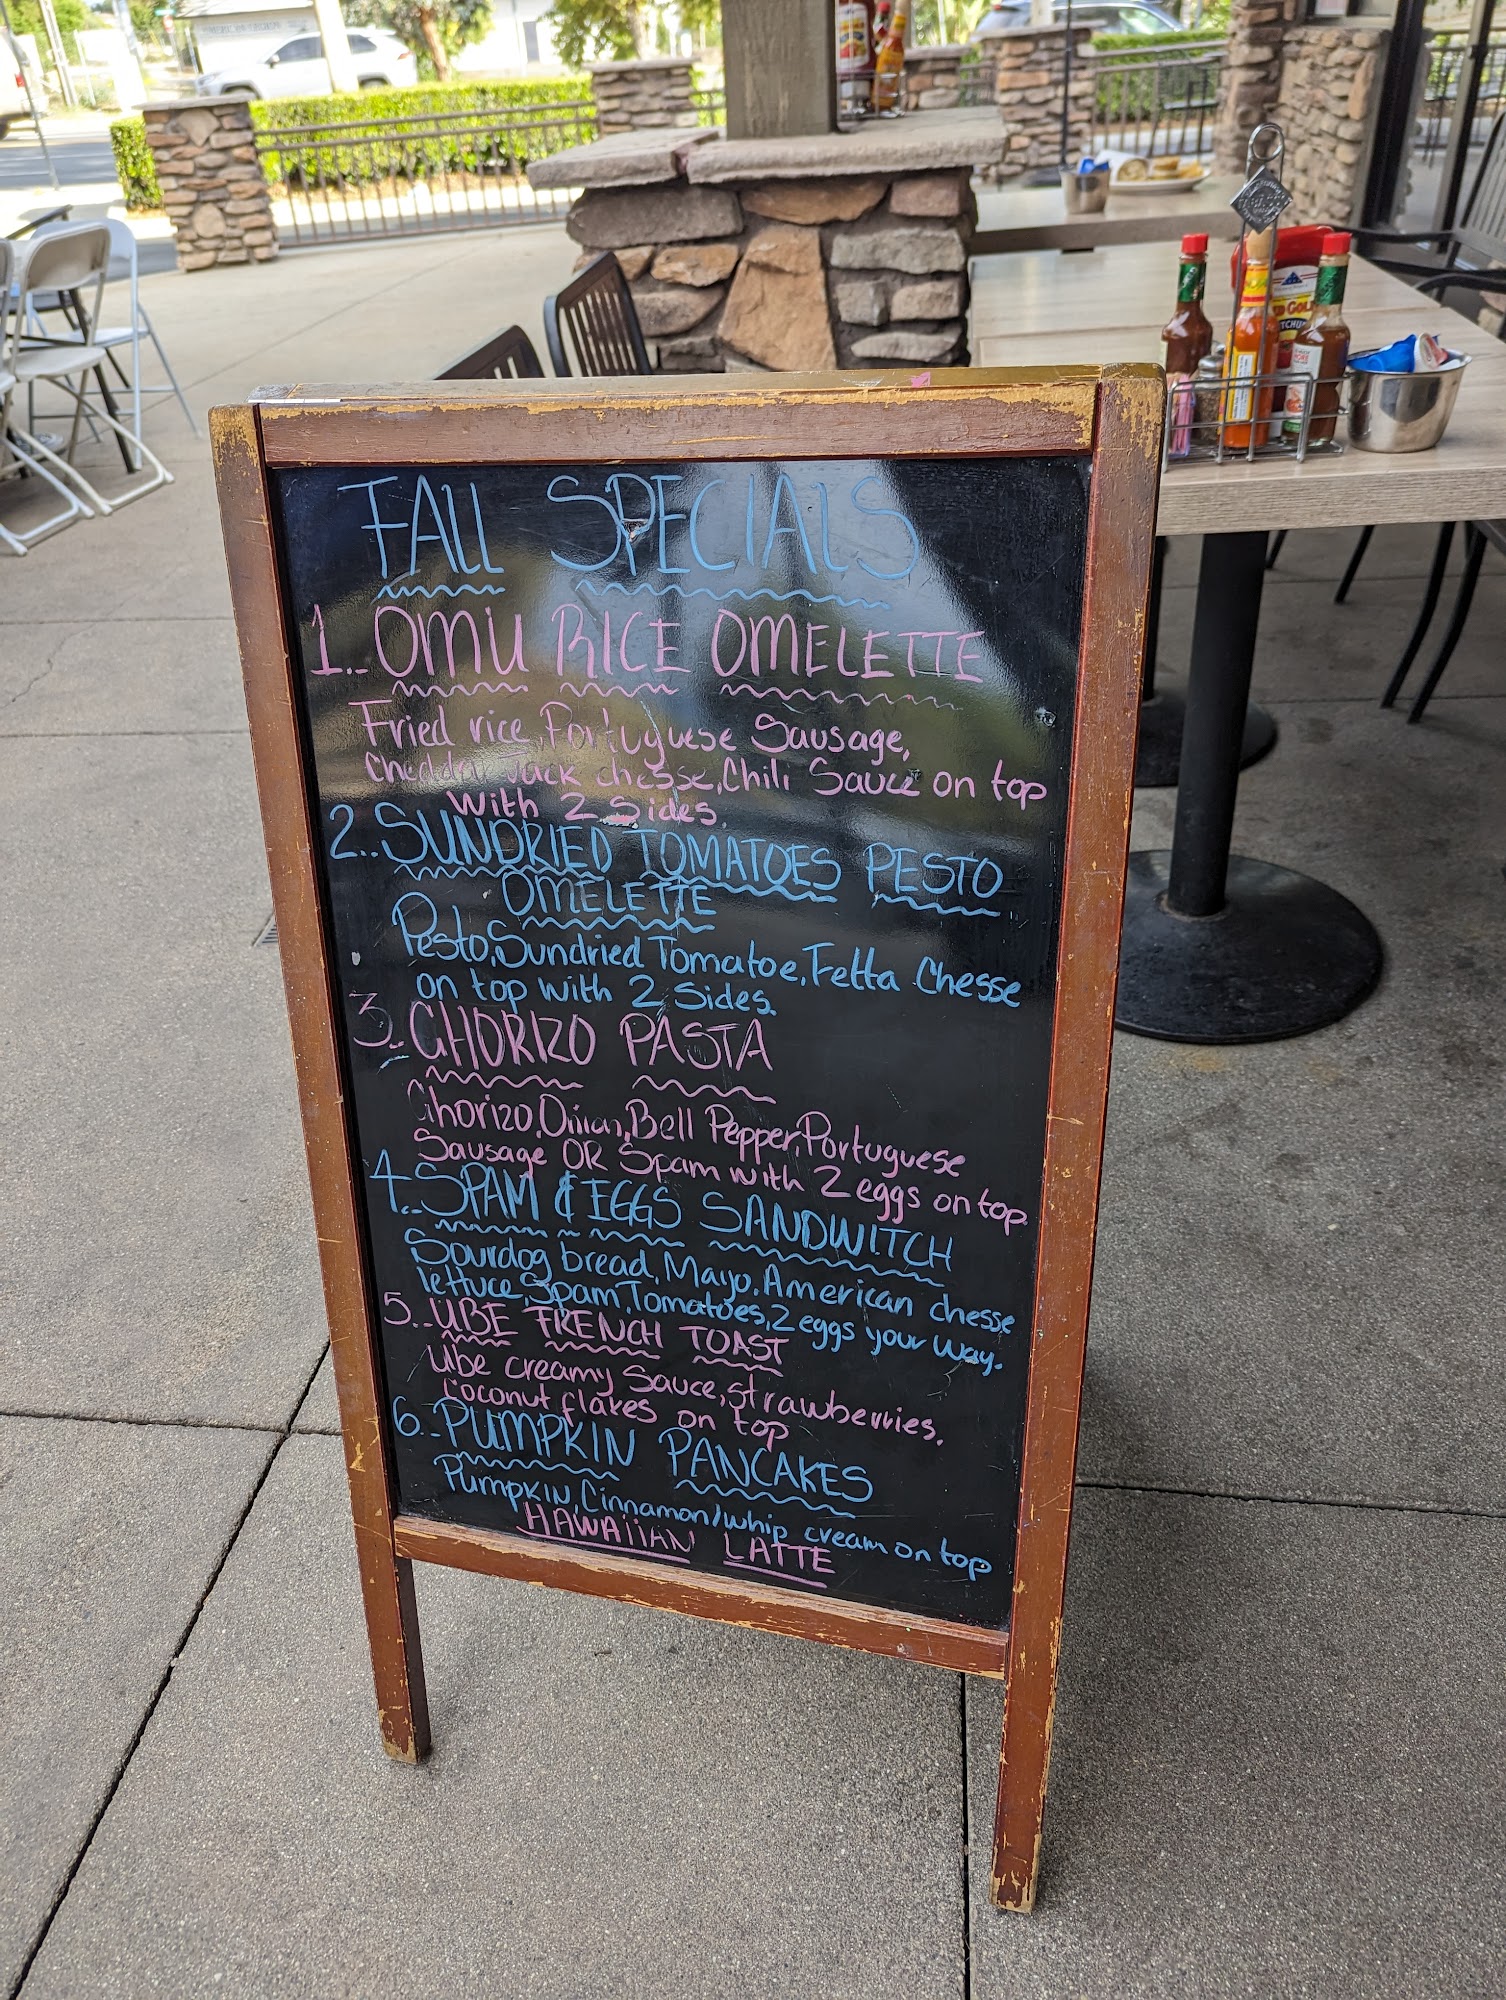 FALL SPECIALS
1.. OMU RICE OMELETTE
Fried rice, Portuguese Sausage,
Cheddar Jack chesse, Chili Sauce on top
With 2 Sides.
2.. SUNDRIED TOMATOES PESTO
OMELETTE
Pesto, Sundried Tomatoe, Fetta Chesse
on top with 2 Sides.
3.. CHORIZO PASTA
Chorizo, Onion, Bell Pepper, Portuguese
Sausage OR Spam with 2 eggs on top
4.. SPAM & EGGS SANDWITCH
Sourdog bread, Mayo, American chesse
lettuce, Spam, Tomatoes, 2 eggs your way.
5.. UBE FRENCH TOAST
Ube creamy Sauce, strawberries,
Coconut flakes on top
6.. PUMPKIN PANCAKES
Pumpkin, Cinnamon/whip cream on top
HAWAIIAN LATTE